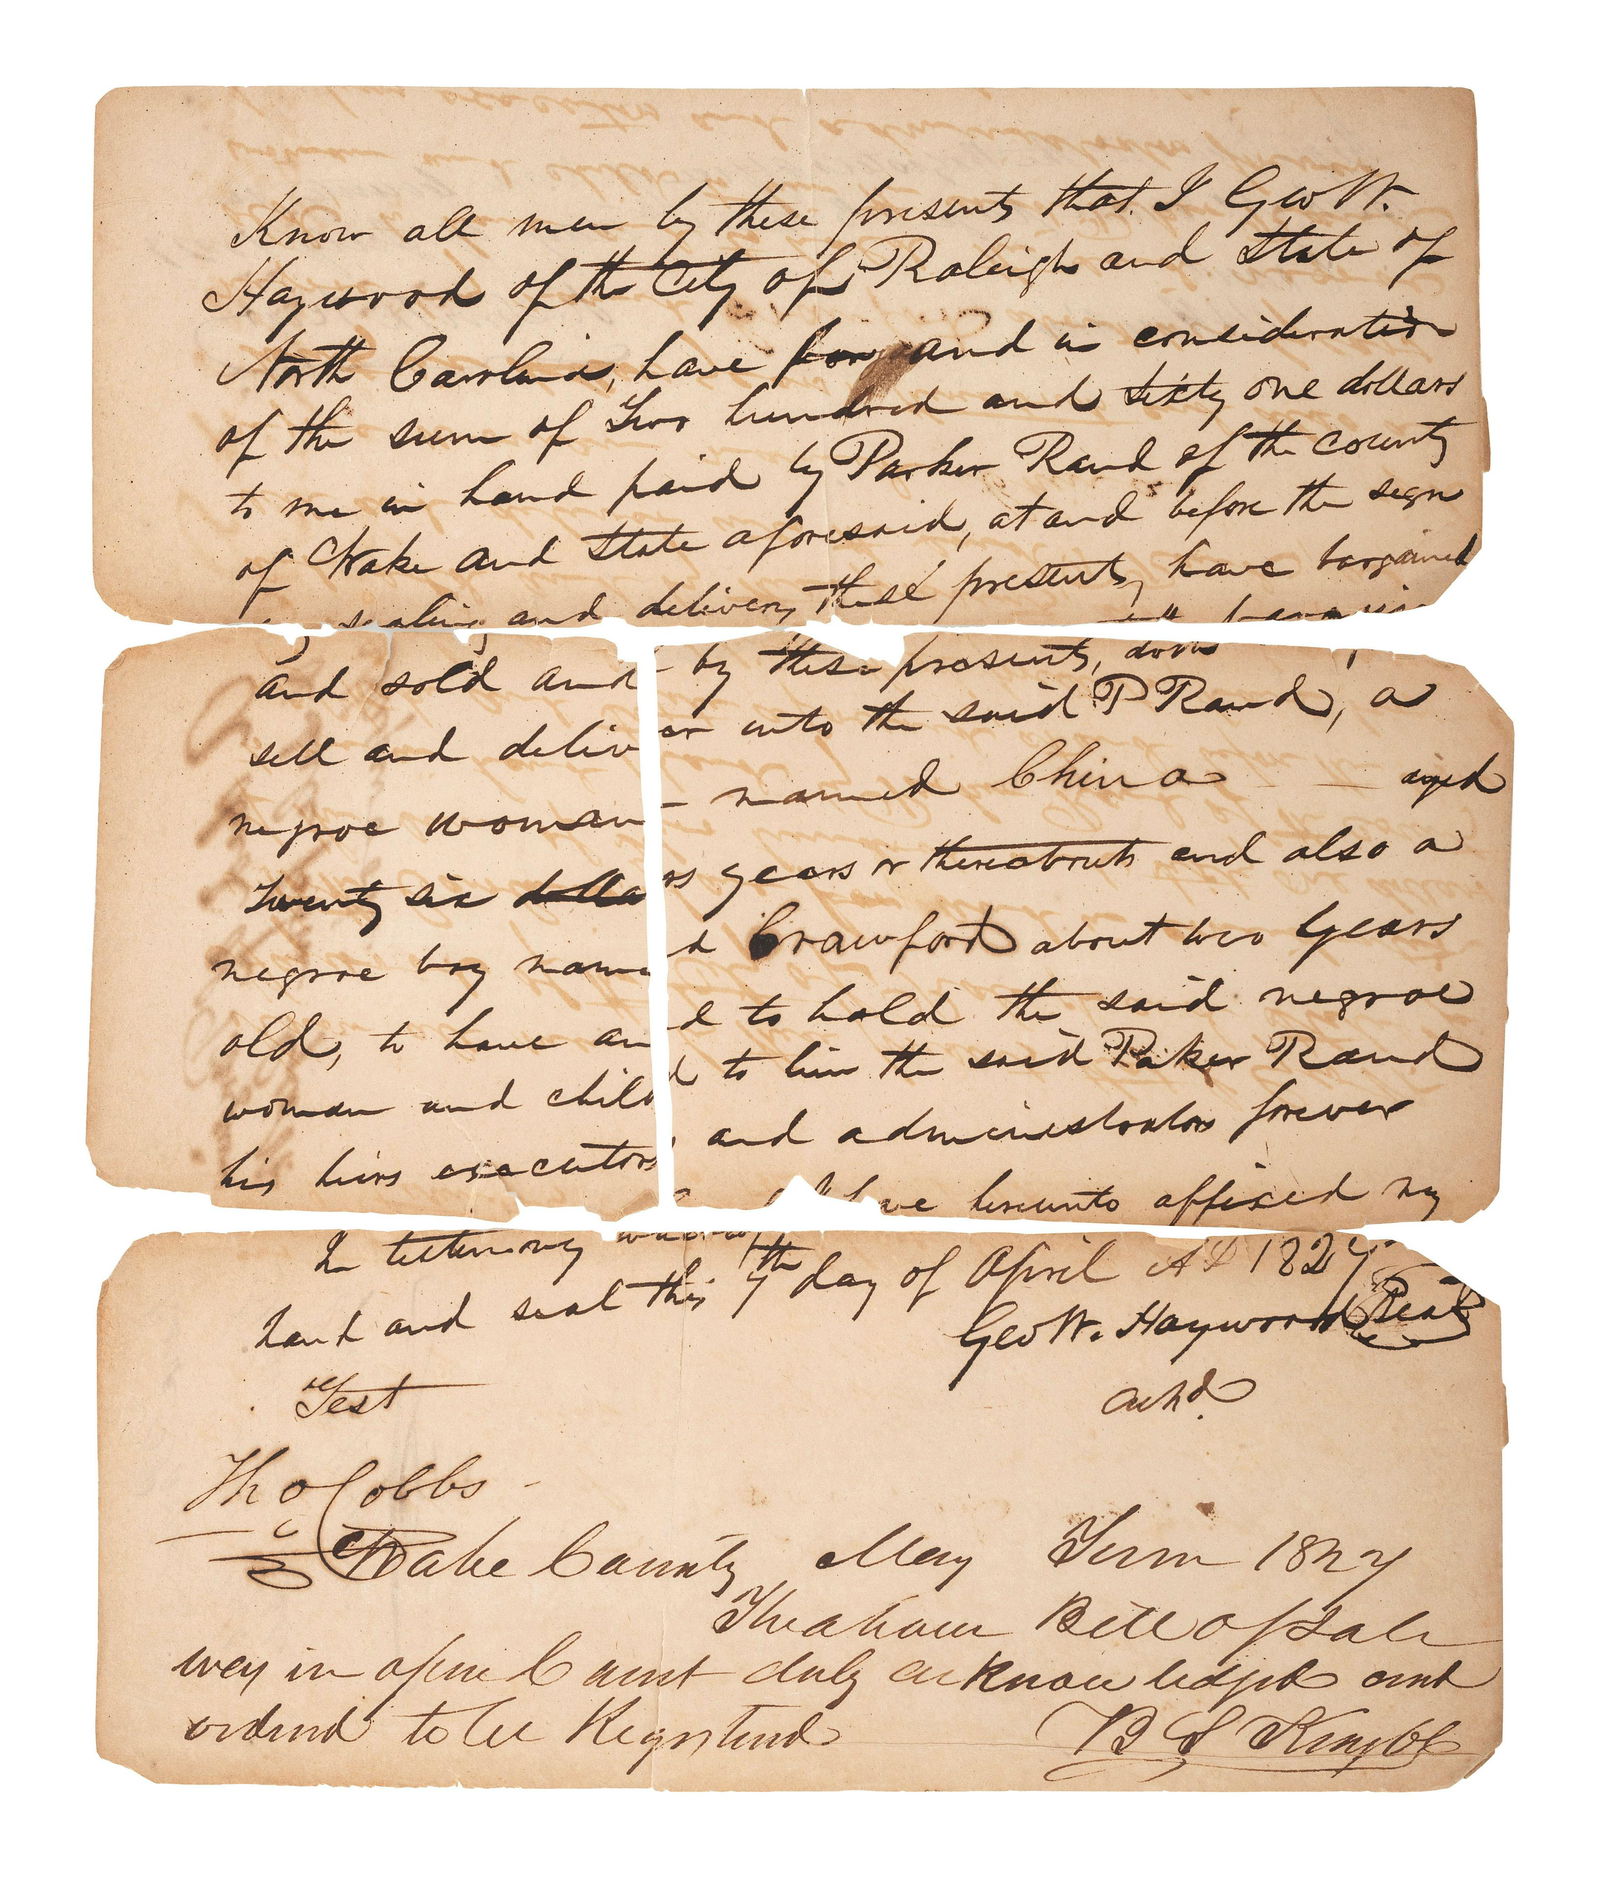 Know all men by these presents that I Geo W.
Haywood of the City of Raleigh and State of
North Carolina, have for and in consideration
of the sum of Two hundred and sixty one dollars
to me in hand paid by Parker Rand of the county
of Wake and State aforesaid, at and before the sign
sealing and delivery these presents, have bargained
and sold and by these presents, doth bargain
sell and deliver unto the said P Rand, a
negroe woman named China aged
Twenty six dollars years or thereabouts and also a
negroe boy named Crawford about two years
old, to have and to hold the said negroe
woman and child to him the said Parker Rand
his heirs executors and administrators forever
In testimony whereof I have hereunto affixed my
hand and seal this 7th day of April AD 1827
Geo W. Haywood Seal
Test
Tho Cobbs
Wake County May Term 1827
The above Bill of Sale
was in open Court duly acknowledged and
ordered to be Registered
B S King Clk